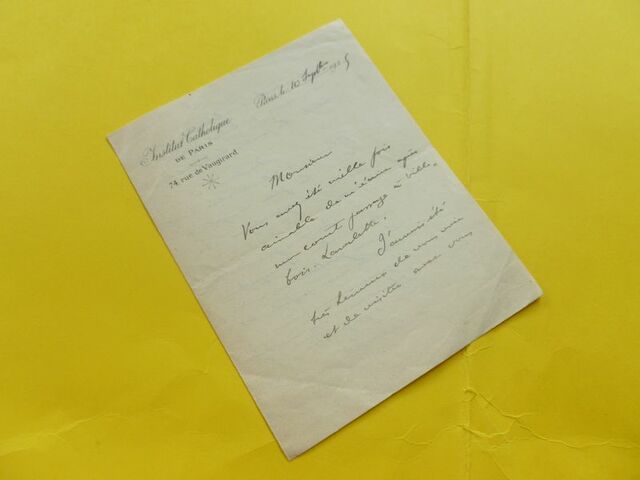 Institut Catholique
DE PARIS
74 rue de Vaugirard
Paris, le 10 Septbre
Monsieur
Vous avez été mille fois
aimable de m'écrire après
mon court passage à Ville-
bois-Lavalette.
J'aurais été
très heureux de vous voir
et de visiter avec vous